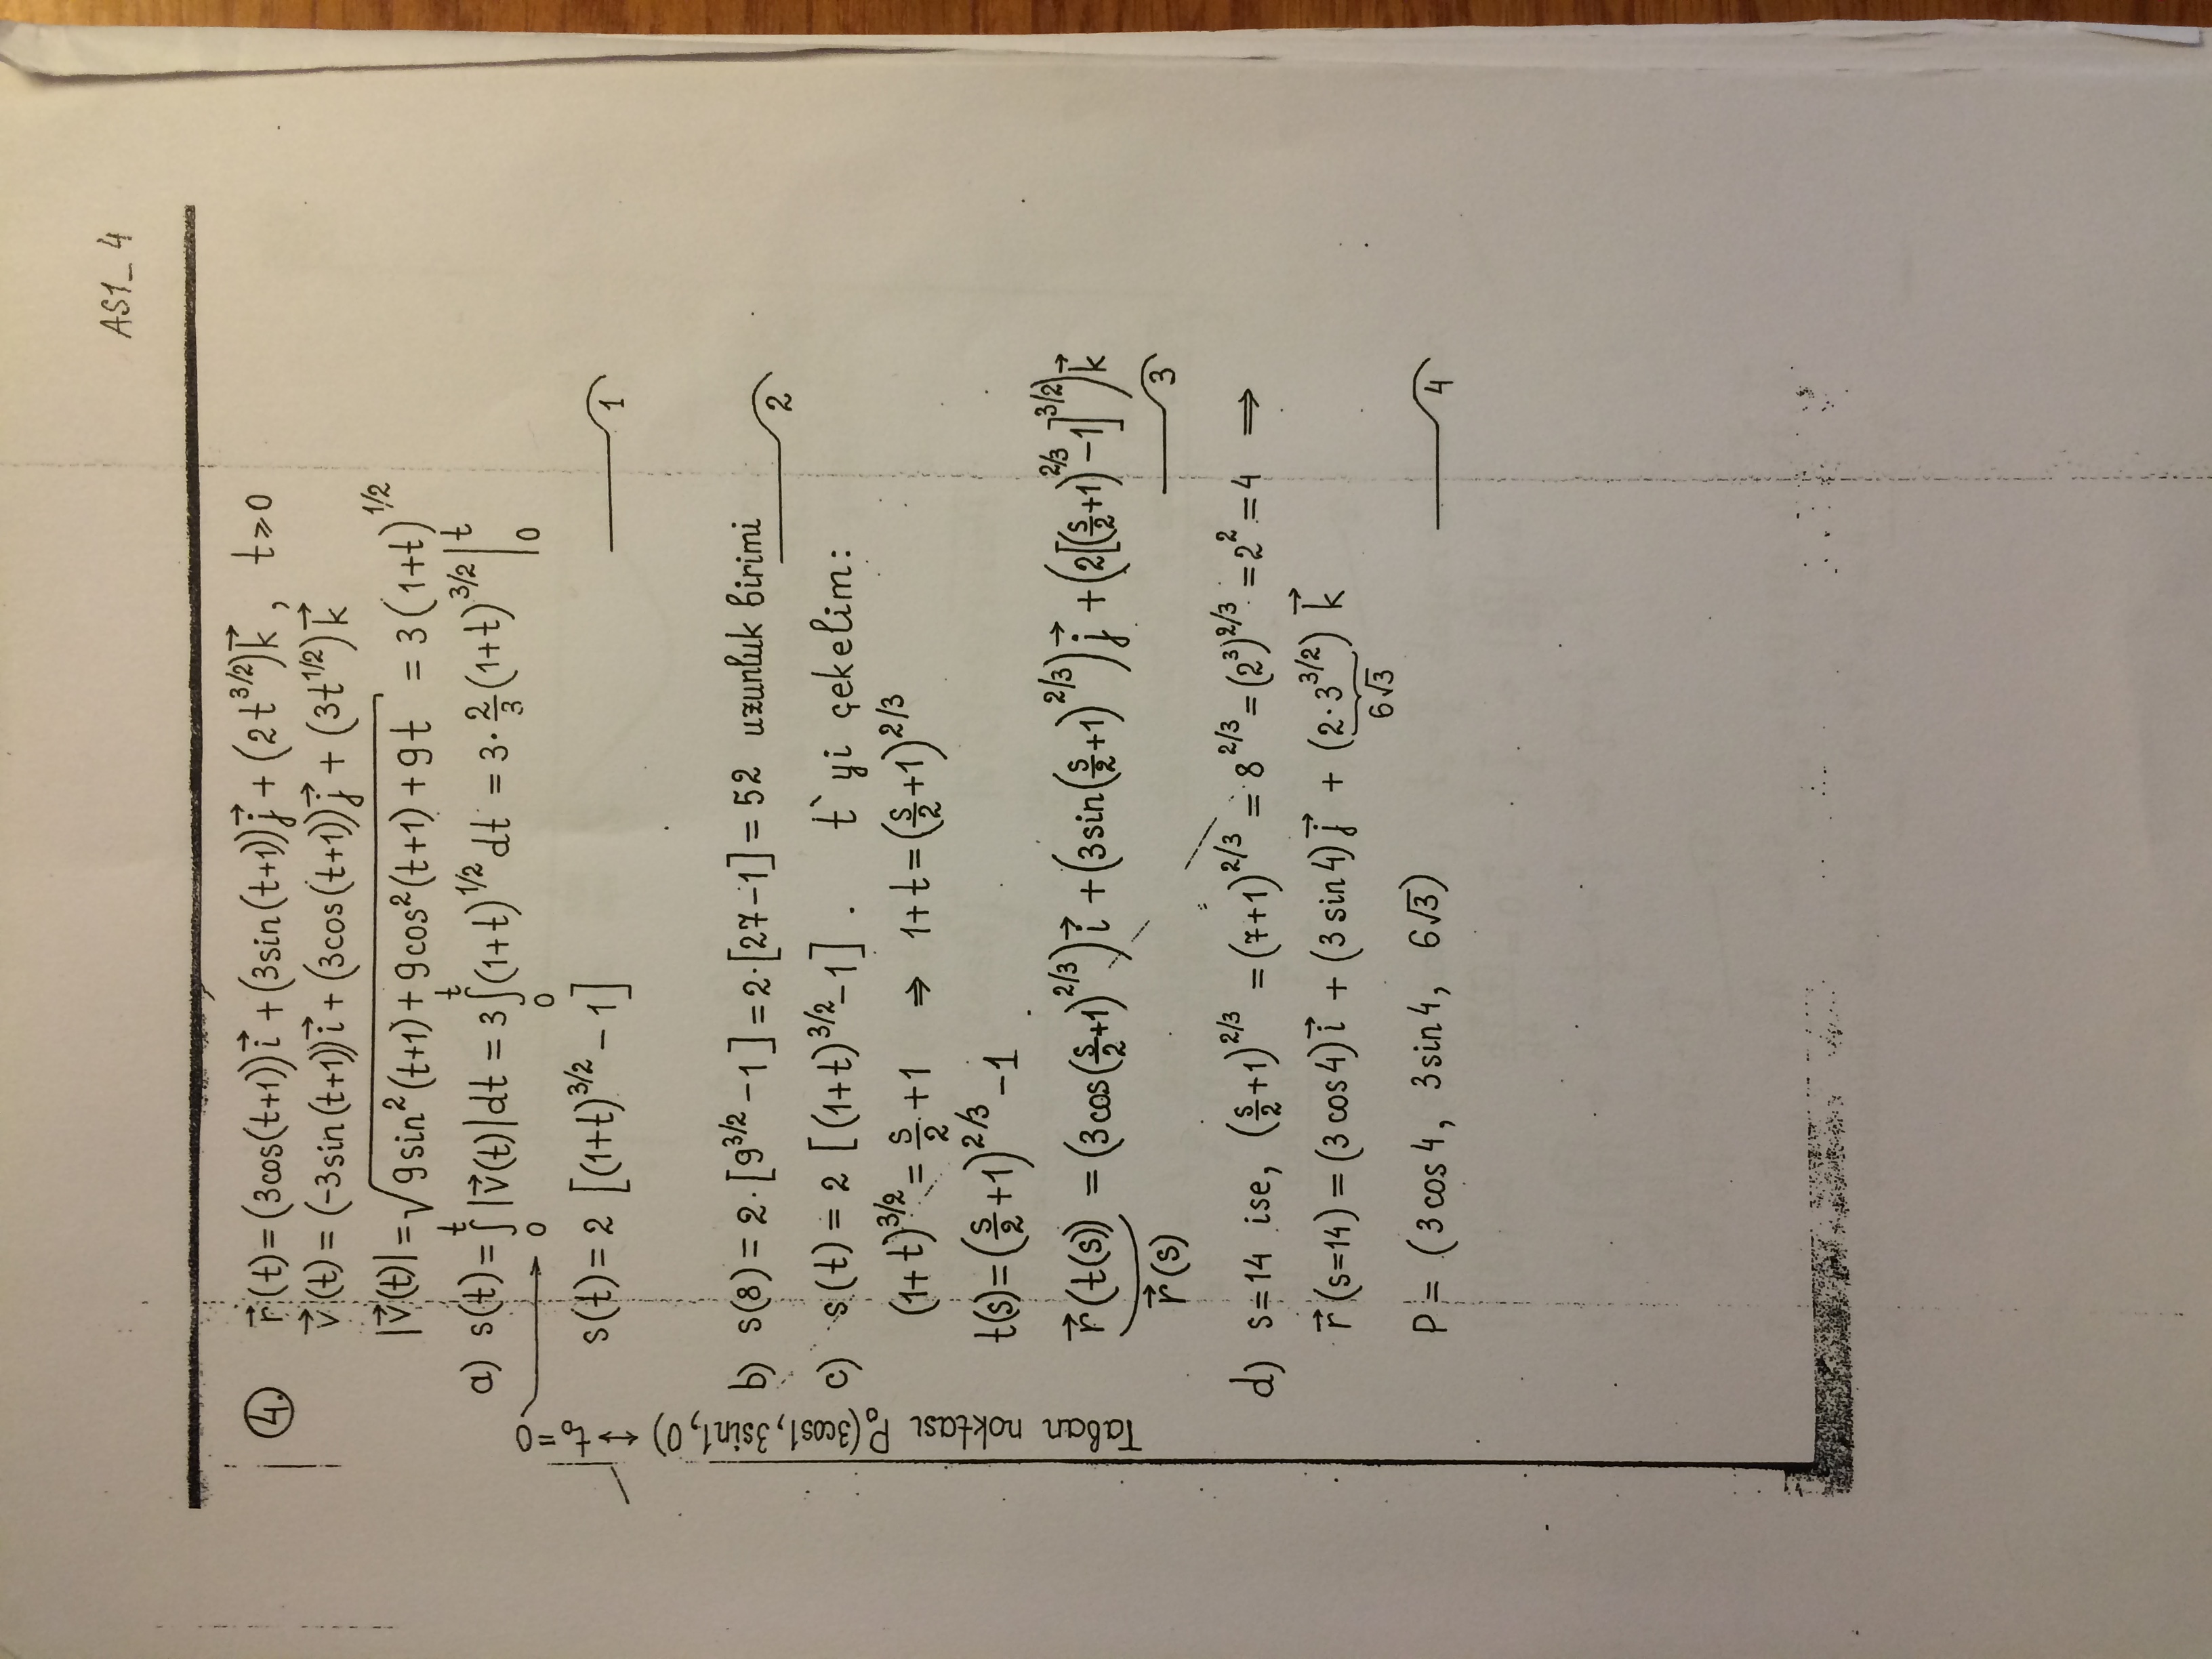 AS1_4
4. r⃗(t)=(3cos(t+1))i⃗+(3sin(t+1))j⃗+(2t^{3/2})k⃗, t⩾0
v⃗(t)=(-3sin(t+1))i⃗+(3cos(t+1))j⃗+(3t^{1/2})k⃗
|v⃗(t)|=√(9sin²(t+1)+9cos²(t+1)+9t) = 3(1+t)^{1/2}
a) s(t)=∫₀ᵗ|v⃗(t)|dt = 3∫₀ᵗ(1+t)^{1/2}dt = 3·2/3(1+t)^{3/2}|₀ᵗ
s(t)=2[(1+t)^{3/2}-1] 1
Taban noktası P₀(3cos1,3sin1,0)↔t₀=0
b) s(8)=2·[9^{3/2}-1]=2·[27-1]=52 uzunluk birimi 2
c) s(t)=2[(1+t)^{3/2}-1]. t`yi çekelim:
(1+t)^{3/2}=s/2+1 ⇒ 1+t=(s/2+1)^{2/3}
t(s)=(s/2+1)^{2/3}-1
r⃗(t(s))=(3cos(s/2+1)^{2/3})i⃗+(3sin(s/2+1)^{2/3})j⃗+(2[(s/2+1)^{2/3}-1]^{3/2})k⃗
r⃗(s) 3
d) s=14 ise, (s/2+1)^{2/3}=(7+1)^{2/3}=8^{2/3}=(2³)^{2/3}=2²=4 ⇒
r⃗(s=14)=(3cos4)i⃗+(3sin4)j⃗+(2·3^{3/2})k⃗
6√3
P=(3cos4, 3sin4, 6√3) 4